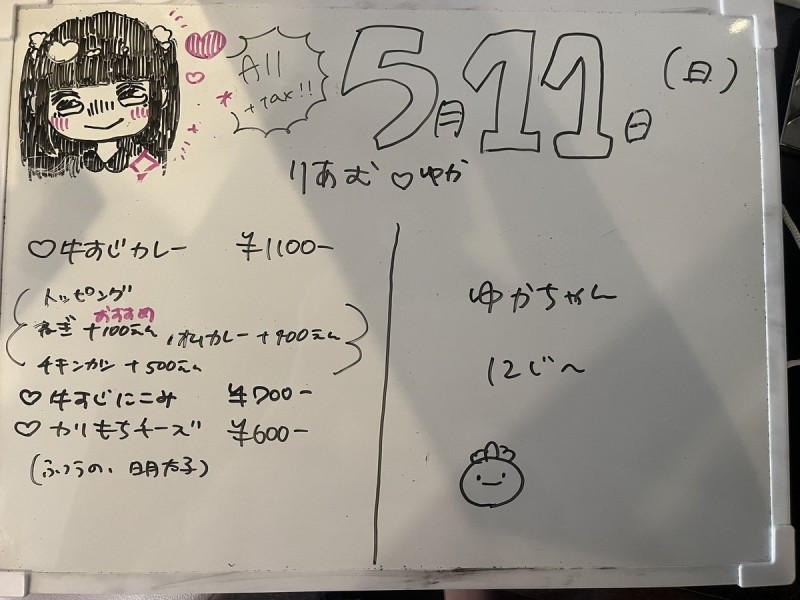 All
+ tax!!
5月11日
(日)
りあむ♡ゆか
♡牛すじカレー ¥1100-
トッピング
おすすめ
ねぎ +100えん, オムカレー +400えん
チキンカツ +500えん
♡牛すじにこみ ¥700-
♡カリもちチーズ ¥600-
(ふつうの、明太子)
ゆかちゃん
12じ〜